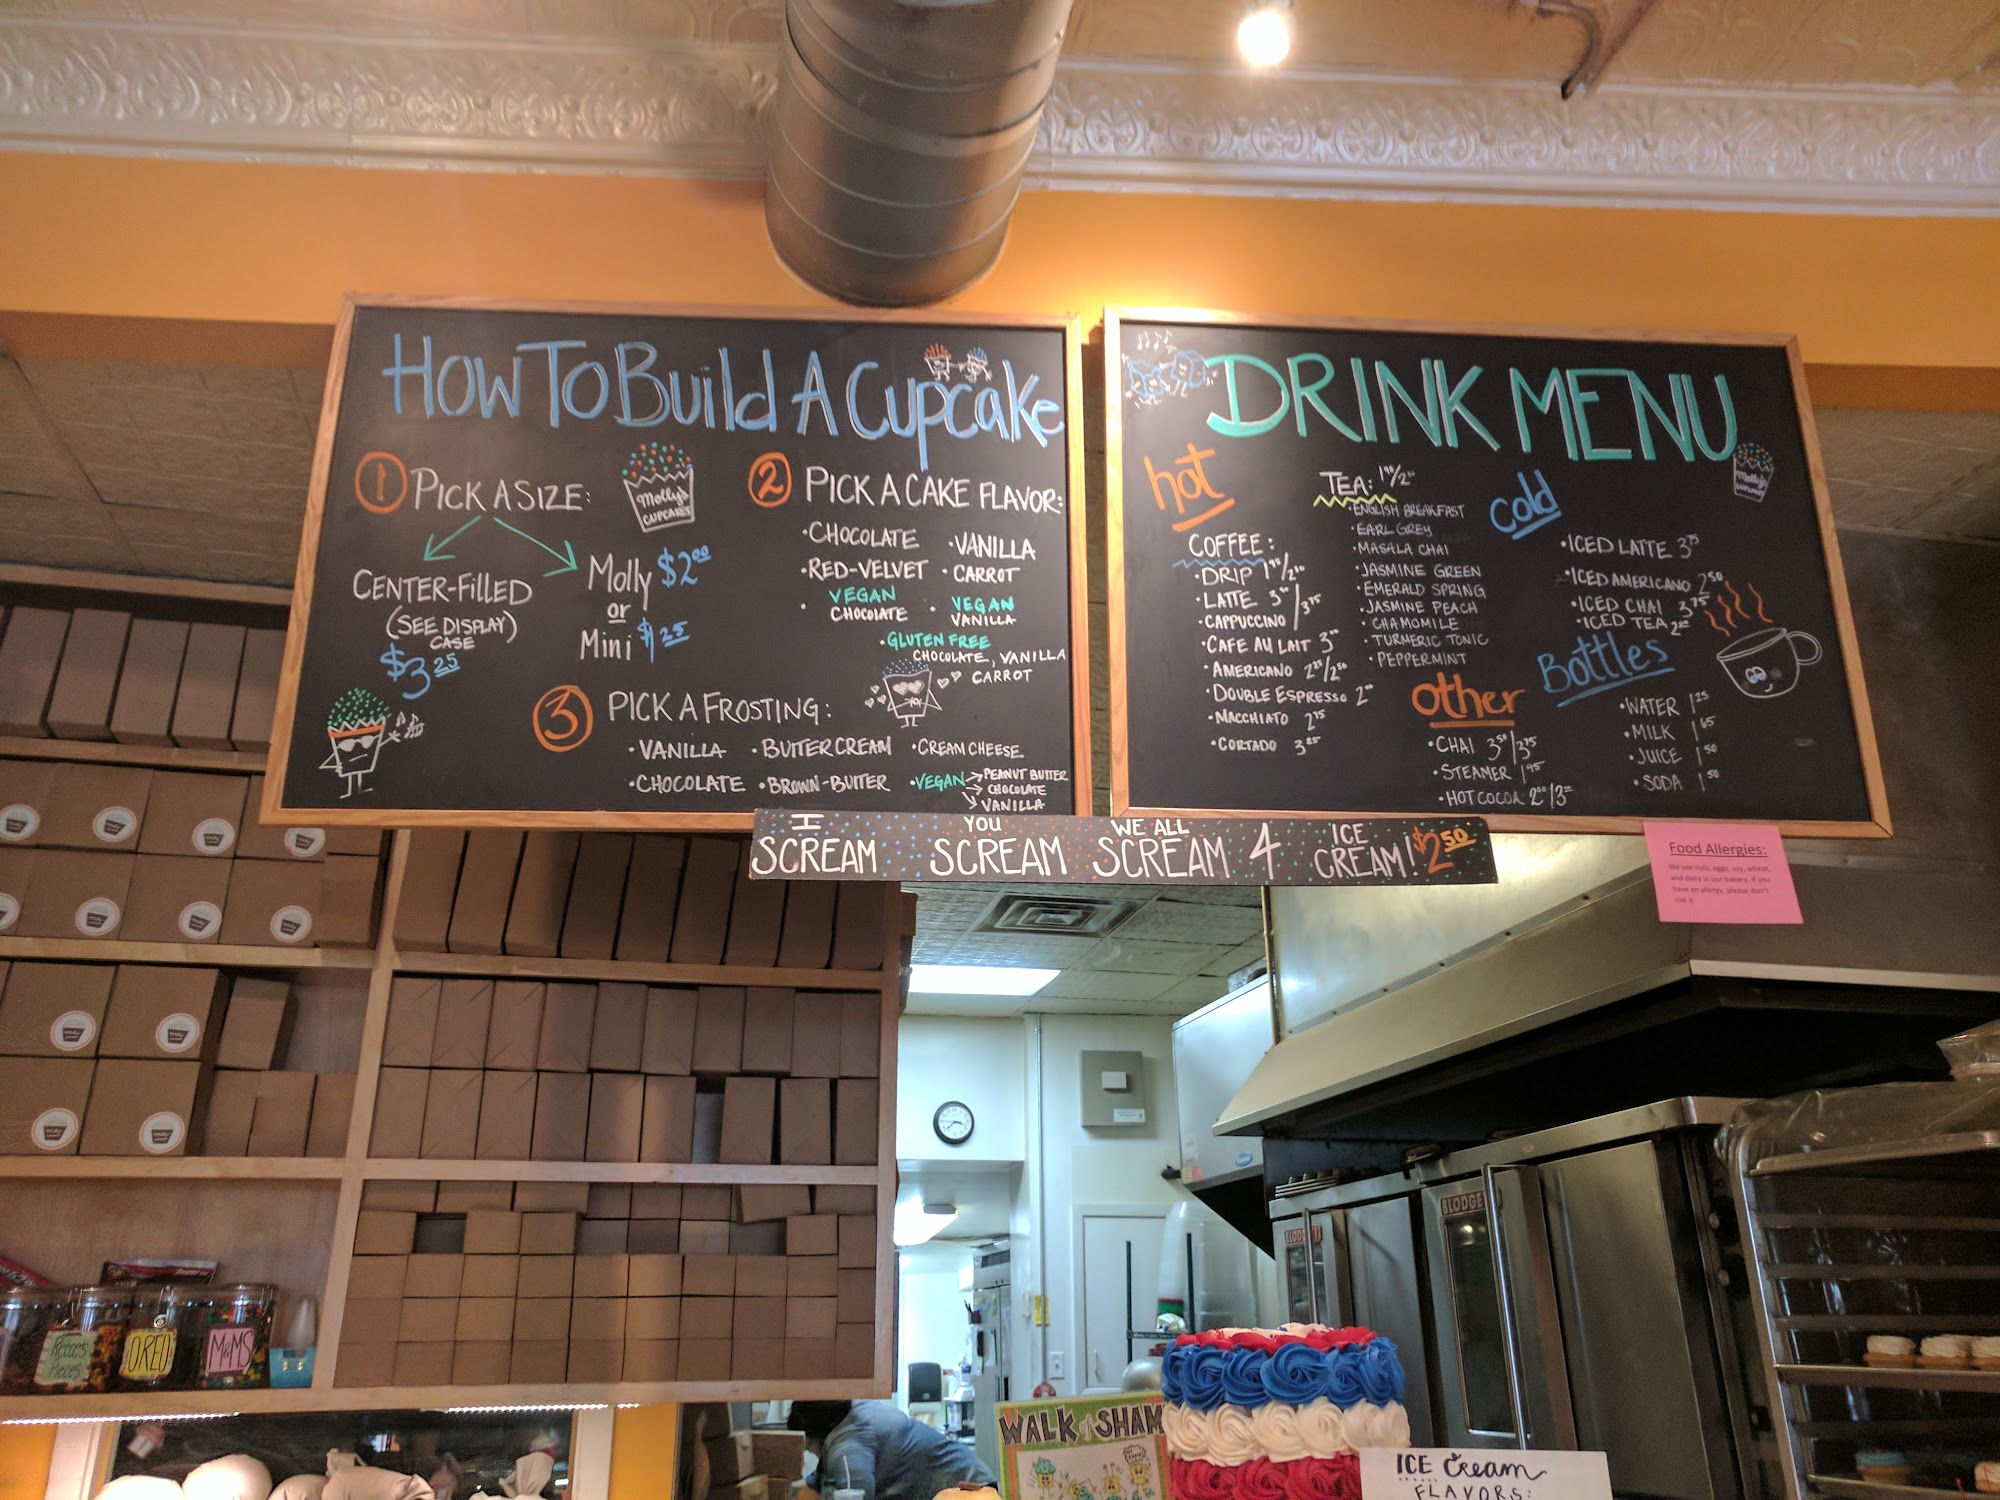 How To Build A Cupcake
1 PICK A SIZE:
CENTER-FILLED
(SEE DISPLAY)
CASE
$3.25
Molly $2.00
or
Mini $1.25
Molly's
CUPCAKES
2 PICK A CAKE FLAVOR:
•CHOCOLATE •VANILLA
•RED-VELVET •CARROT
• VEGAN CHOCOLATE • VEGAN VANILLA
•GLUTEN FREE
CHOCOLATE, VANILLA
CARROT
3 PICK A FROSTING:
•VANILLA •BUTTERCREAM •CREAM CHEESE
•CHOCOLATE •BROWN-BUTTER •VEGAN → PEANUT BUTTER
→ CHOCOLATE
↘ VANILLA
DRINK MENU
Molly's
CUPCAKES
hot
COFFEE:
•DRIP
•LATTE
•CAPPUCCINO
3.75
•CAFE AU LAIT
•AMERICANO
•DOUBLE ESPRESSO
•MACCHIATO 2.75
•CORTADO 3.25
TEA:
•ENGLISH BREAKFAST
•EARL GREY
•MASALA CHAI
•JASMINE GREEN
•EMERALD SPRING
•JASMINE PEACH
•CHAMOMILE
•TURMERIC TONIC
•PEPPERMINT
other
•CHAI 3.50/3.75
•STEAMER 1.95
•HOT COCOA
cold
•ICED LATTE 3.75
•ICED AMERICANO 2.50
•ICED CHAI 3.75
•ICED TEA
Bottles
•WATER 1.25
•MILK 1.65
•JUICE 1.50
•SODA 1.50
I SCREAM YOU SCREAM WE ALL SCREAM 4 ICE CREAM! $2.50
Food Allergies:
We use nuts, eggs, soy, wheat,
and dairy in our bakery. If you
have an allergy, please don't
risk it.
REESE'S
PIECES
OREO
M&MS
BLODGETT
BLODGE
WALK of SHAM
ICE Cream
FLAVORS: